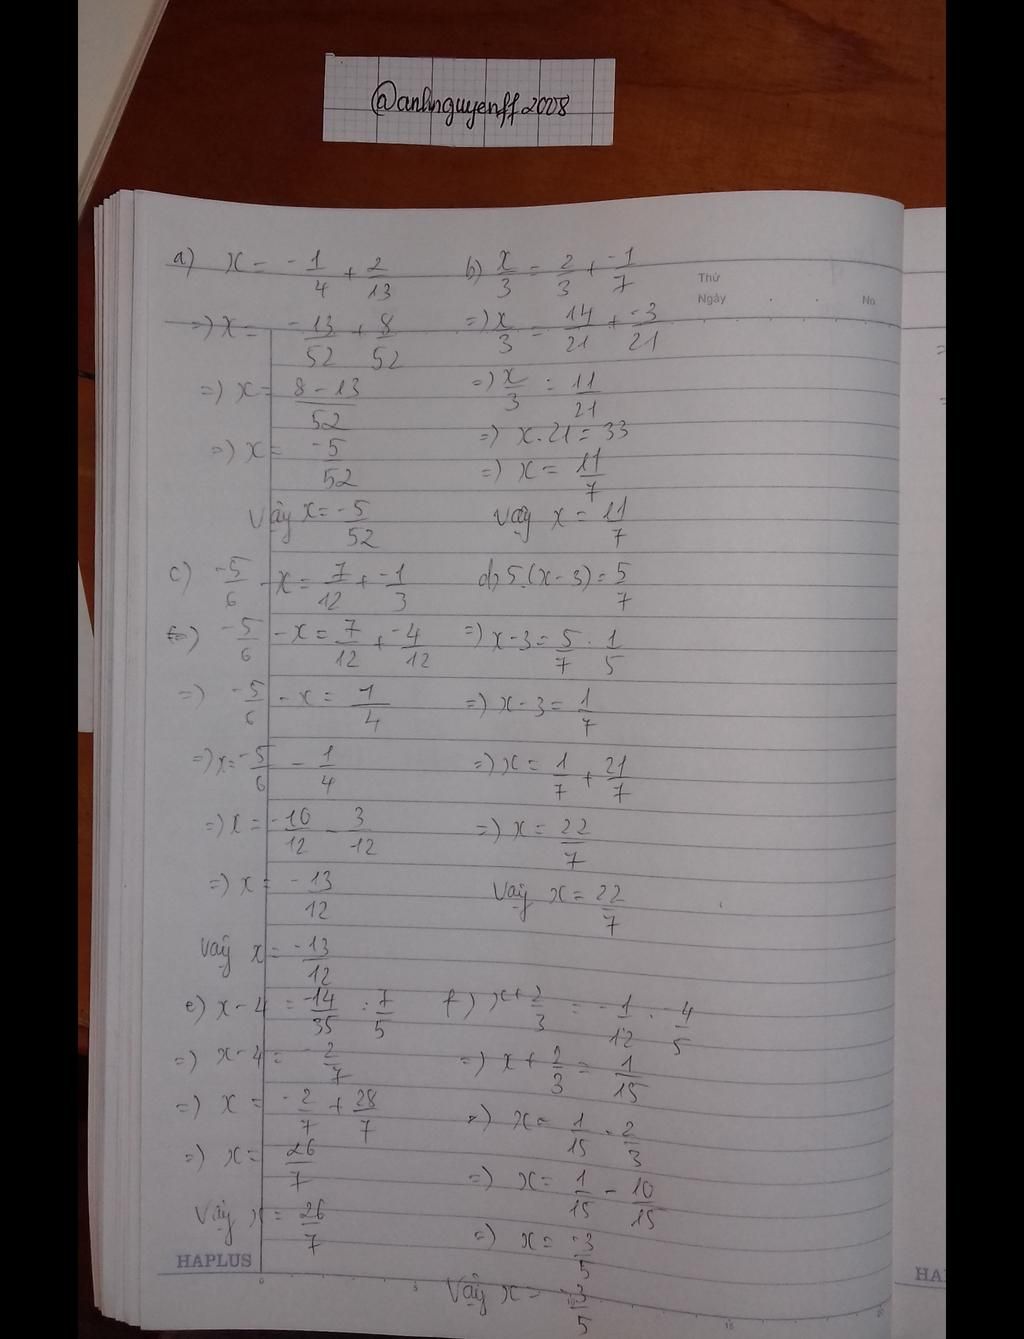 @anhnguyenff2008
Thứ
Ngày
No
a) x = -1/4 + 2/13
=) x = -13/52 + 8/52
=) x = 8-13/52
=) x = -5/52
Vậy x = -5/52
b) x/3 = 2/3 + -1/7
=) x/3 = 14/21 + -3/21
=) x/3 = 11/21
=) x.21 = 33
=) x = 11/7
Vậy x = 11/7
c) -5/6 - x = 7/12 + -1/3
=) -5/6 - x = 7/12 + -4/12
=) -5/6 - x = 1/4
=) x = -5/6 - 1/4
=) x = -10/12 - 3/12
=) x = -13/12
Vậy x = -13/12
d) 5.(x - 3) = 5/7
=) x - 3 = 5/7 . 1/5
=) x - 3 = 1/7
=) x = 1/7 + 21/7
=) x = 22/7
Vậy x = 22/7
e) x - 4 = -14/35 : 7/5
=) x - 4 = -2/7
=) x = -2/7 + 28/7
=) x = 26/7
Vậy x = 26/7
f) x + 2/3 = -1/12 . 4/5
=) x + 2/3 = 1/15
=) x = 1/15 - 2/3
=) x = 1/15 - 10/15
=) x = -3/5
Vậy x = -3/5
HAPLUS
0
5
15
20
HA